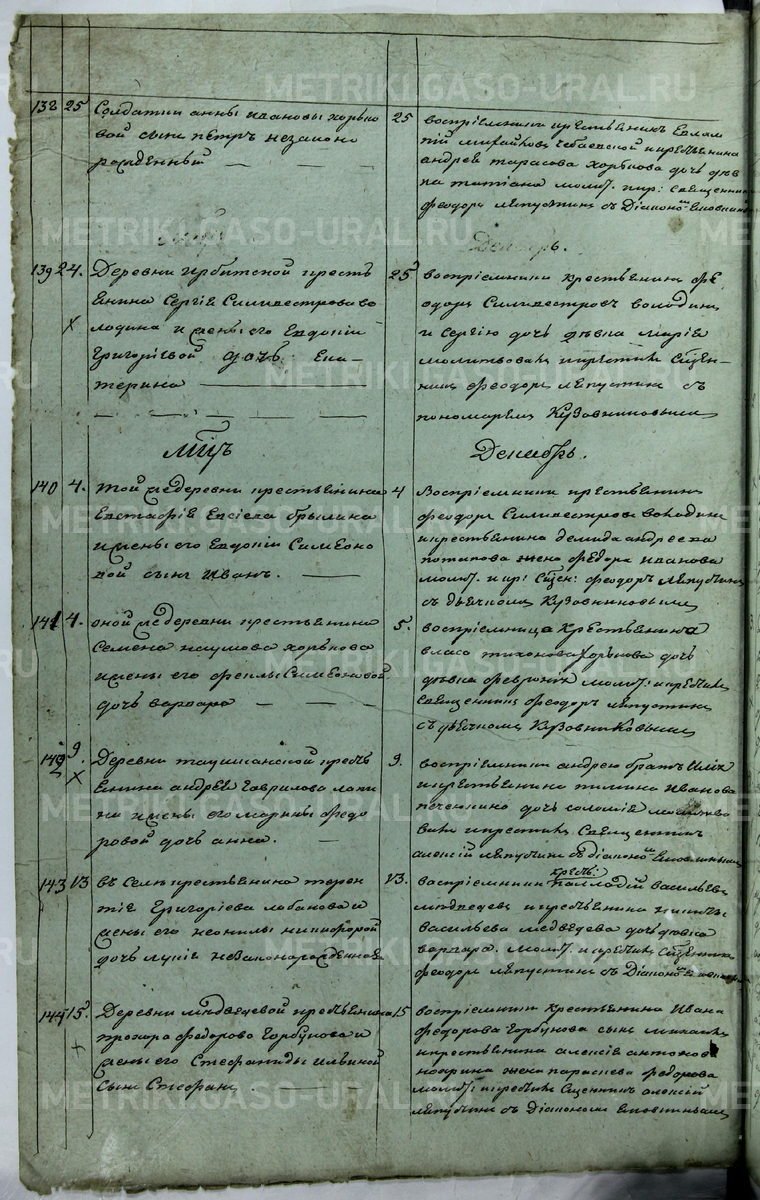 METRIKI.GASO-URAL.RU
138 25 Солдатки анны ивановы хорько
вой сынъ пётръ незаконо
рожденный
25 воспріемники крестьянинъ Евлам
пій михайловъ Чебаевской и крестьянина
андрея тарасова хорькова дочь дѣв
ка татiана молит. и кр: священникъ
феодоръ Ляпустинъ съ Діакономъ
Декабрь.
139 24. Деревни ирбитской кресть
янина Сергѣя Сильвестрова во
лодина и жены его Евдокіи
григоріевой дочь Ека-
терина
25 воспріемники крестьянинъ фе
одоръ Сильвестровъ володинъ
и Сергію дочь дѣвка Марія
молитвовалъ и крестилъ Свщен-
никъ феодоръ Ляпустинъ съ
пономаремъ Кузовниковымъ
мцъ
Декабрь.
140 4. той же деревни крестьянина
Евстафія Евсѣева брылина
и жены его Евдокіи Симеоно
вой сынъ иванъ.
4 Воспріемники крестьянинъ
феодоръ Сильвестровъ володинъ
и крестьянина демида андреева
потапова жена федора иванова
молит. и кр: Свщен: феодоръ Ляпустинъ
съ дьячкомъ Кузовниковымъ
141 4. оной же деревни крестьянина
Семена наумова хорькова
и жены его феклы Симеоновой
дочь варвара
5. воспріемница Крестьянина
власа тихонова хорькова дочь
дѣвка феврониа молит: и крестилъ
Священникъ феодоръ Ляпустинъ
съ дьячкомъ Кузовниковымъ
142 9. Деревни
янина андрея Гаврилова лапи
на и жены его марины федо
ровой дочь анна.
9. воспріемники андрею братъ илія
и крестьянина Иванова
печеркина дочь соломія молитво
валъ и крестилъ Священникъ
алексій Ляпустинъ съ діакономъ
143 13 въ Селѣ крестьянина терен
тія Григоріева лобанова и
жены его неонилы никифоровой
дочь лукія незаконорожденная
13. воспріемники крест: палладій васильевъ
медведевъ и крестьянина никиты
васильева медведева дочь дѣвка
варвара. молит. и крестилъ Свщенникъ
феодоръ Ляпустинъ съ Діакономъ
144 15. Деревни медведевой крестьянина
прохора федорова Горбунова и
жены его Стефаниды ильиной
сынъ Стефанъ
15 воспріемники крестьянина Ивана
федорова Горбунова сынъ михаилъ
и крестьянина алексія антонова
жена параскева федорова
молит: и крестилъ Сщенникъ алексій
Ляпустинъ съ діакономъ